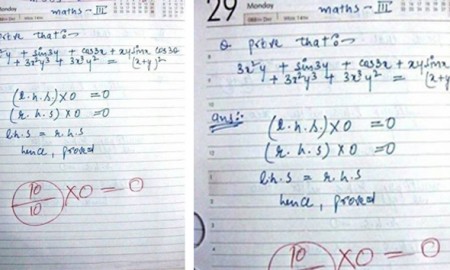 maths - III
Prove that:-
x²y + sin3y + cos3x + xy sinx cos30
+ 3x²y³ + 3x³y² = (x+y)²
(l.h.s.) x 0 = 0
(r.h.s) x 0 = 0
l.h.s = r.h.s
hence, proved
10/10 x 0 = 0
29 Monday
maths - III
Q Prove that:-
3x²y + sin3y + cos3x + xysinx
+ 3x²y³ + 3x³y² = (x+y
ans:-
(l.h.s.) x 0 = 0
(r.h.s) x 0 = 0
l.h.s = r.h.s
hence, proved
10 x 0 = 0